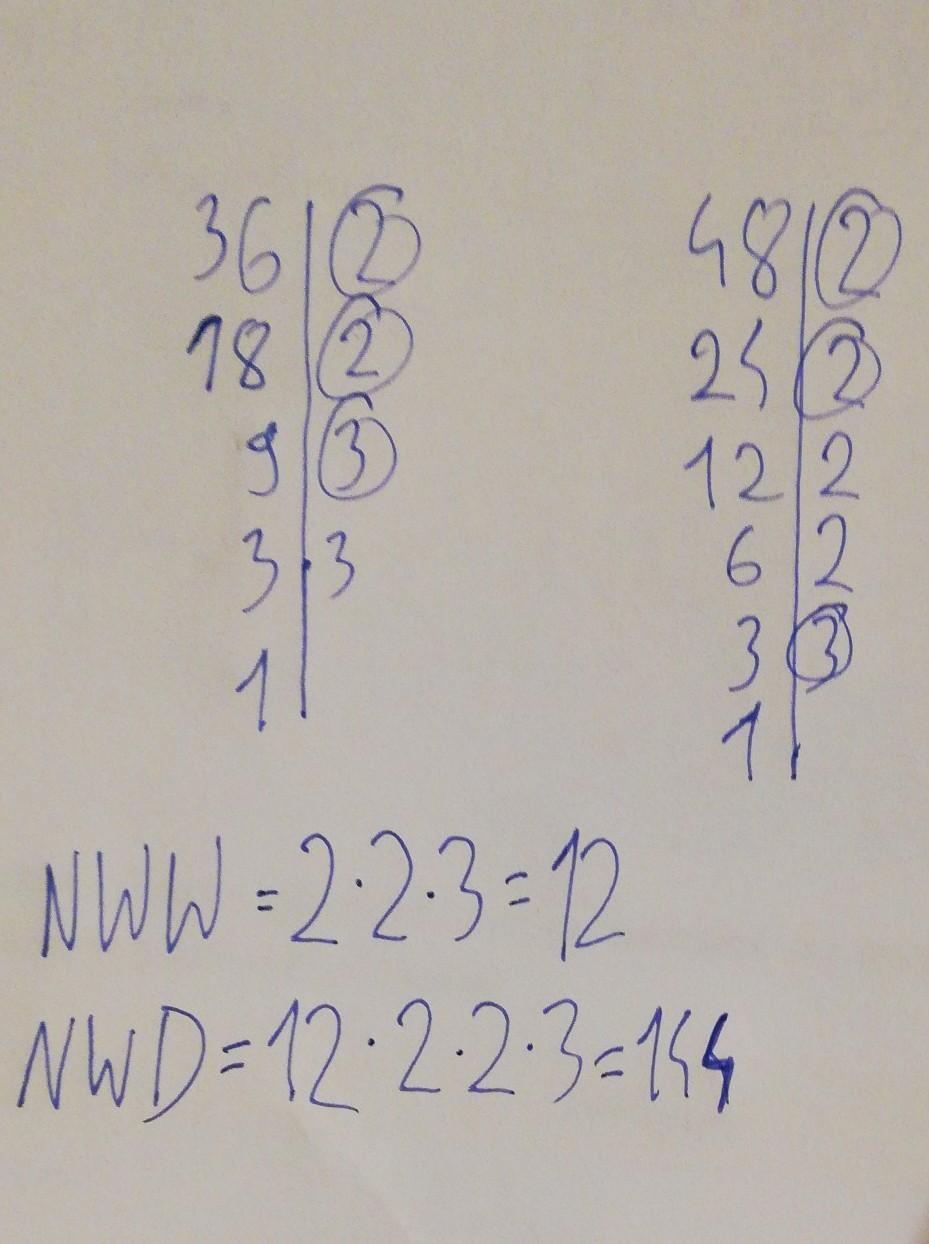 36 | 2 48 | 2
18 | 2 24 | 2
9 | 3 12 | 2
3 | 3 6 | 2
1 | 3 | 3
1 |
NWW = 2·2·3 = 12
NWD = 12·2·2·3 = 144